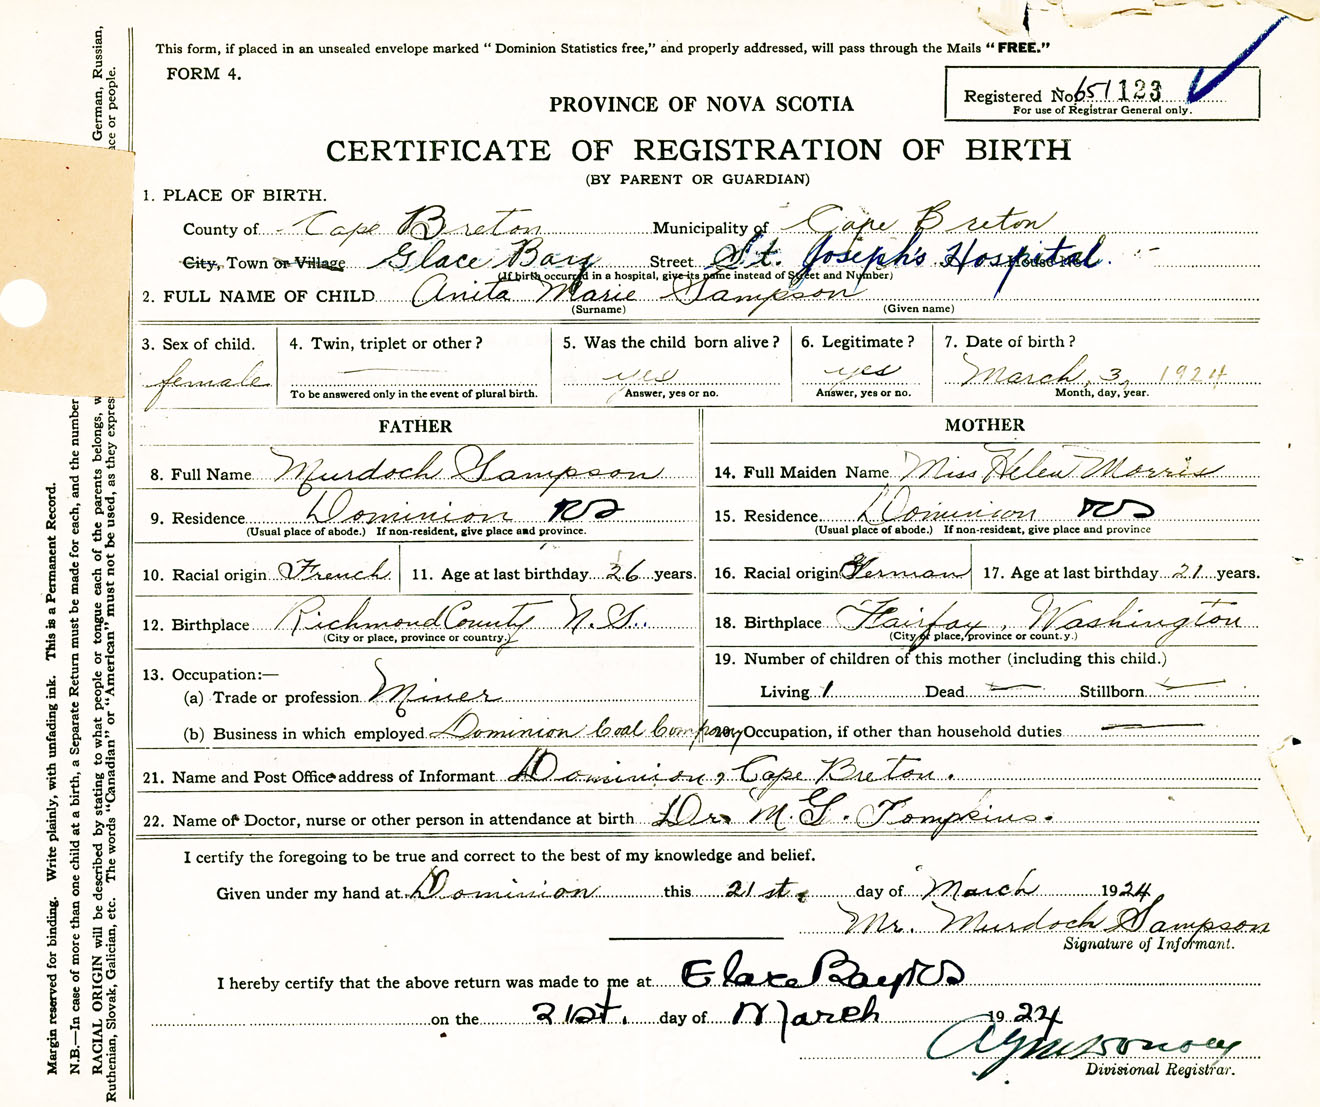 This form, if placed in an unsealed envelope marked "Dominion Statistics free," and properly addressed, will pass through the Mails "FREE."
FORM 4.
Registered No. 651 123
For use of Registrar General only.
PROVINCE OF NOVA SCOTIA
CERTIFICATE OF REGISTRATION OF BIRTH
(BY PARENT OR GUARDIAN)
1. PLACE OF BIRTH.
County of Cape Breton Municipality of Cape Breton
City, Town or Village Glace Bay Street St. Joseph's Hospital.
(If birth occurred in a hospital, give its name instead of Street and Number)
2. FULL NAME OF CHILD Anita Marie Sampson
(Surname) (Given name)
3. Sex of child. 4. Twin, triplet or other? 5. Was the child born alive? 6. Legitimate? 7. Date of birth?
female — yes yes March, 3, 1924
To be answered only in the event of plural birth. Answer, yes or no. Answer, yes or no. Month, day, year.
FATHER MOTHER
8. Full Name Murdoch Sampson 14. Full Maiden Name Miss Helen Morris
9. Residence Dominion 15. Residence Dominion
(Usual place of abode.) If non-resident, give place and province. (Usual place of abode.) If non-resident, give place and province
10. Racial origin French 11. Age at last birthday 26 years. 16. Racial origin German 17. Age at last birthday 21 years.
12. Birthplace Richmond County N.S. 18. Birthplace Fairfax, Washington
(City or place, province or country.) (City or place, province or country.)
13. Occupation:— 19. Number of children of this mother (including this child.)
(a) Trade or profession Miner Living 1 Dead — Stillborn —
(b) Business in which employed Dominion Coal Company 20. Occupation, if other than household duties —
21. Name and Post Office address of Informant Dominion, Cape Breton.
22. Name of Doctor, nurse or other person in attendance at birth Dr. M. G. Tompkins.
I certify the foregoing to be true and correct to the best of my knowledge and belief.
Given under my hand at Dominion this 21st. day of March 1924
Mr. Murdoch Sampson
Signature of Informant.
I hereby certify that the above return was made to me at Glace Bay NS
on the 21st. day of March 1924
Divisional Registrar.
Margin reserved for binding. Write plainly, with unfading ink. This is a Permanent Record.
N.B.—In case of more than one child at a birth, a Separate Return must be made for each, and the number
RACIAL ORIGIN will be described by stating to what people or tongue each of the parents belongs, German, Russian,
Ruthenian, Slovak, Galician, etc. The words "Canadian" or "American" must not be used, as they express ace or people.